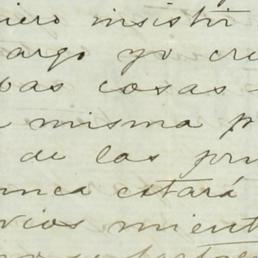 iero insistir
argo yo cre
bas cosas
misma p
de las pri
unca estará
vios mient